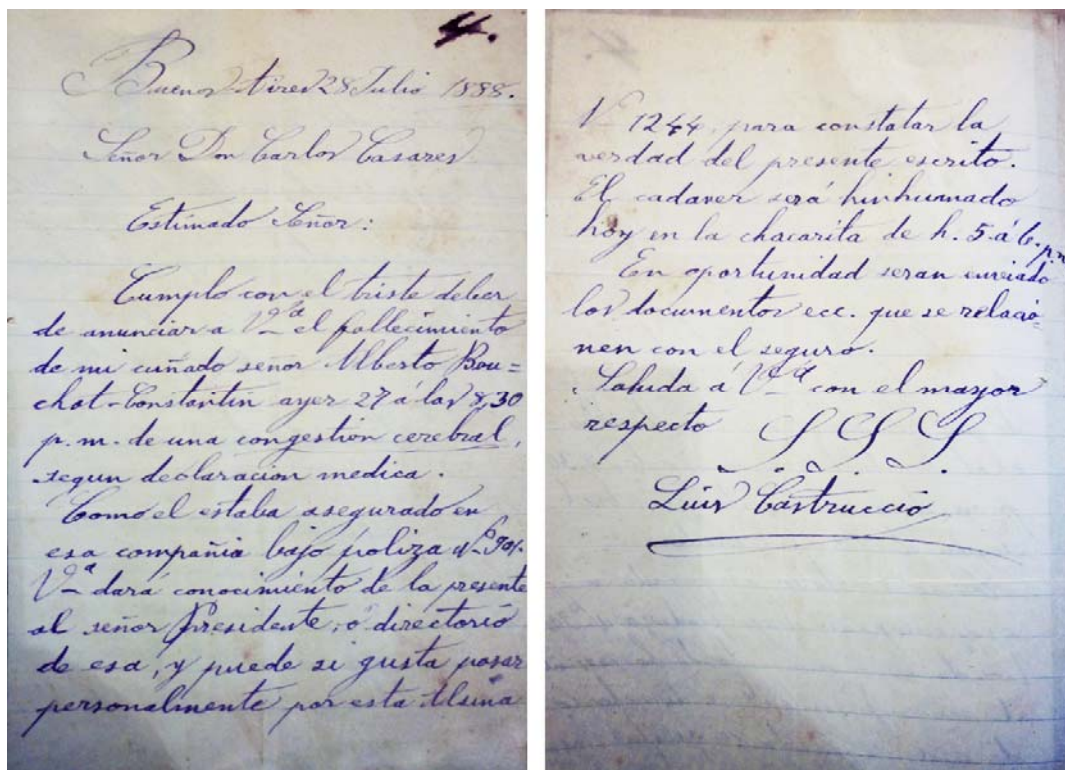 4.
Buenos Aires 28 Julio 1888.
Señor Don Carlos Casares
Estimado Señor:
Cumplo con el triste deber
de anunciar a Vª el fallecimiento
de mi cuñado señor Alberto Bou=
chot-Constantin ayer 27 á las 8,30
p. m. de una congestion cerebral,
segun declaracion medica.
Como el estaba asegurado en
esa compañia bajo poliza Nº
Vª dará conocimiento de la presente
al señor Presidente, ó directorio
de esa, y puede si gusta pasar
personalmente por esta Alsina
Nº 1244, para constatar la
verdad del presente escrito.
El cadaver será hinhumado
hoy en la chacarita de h. 5 á 6. pm
En oportunidad seran enviado
los documentos ecc. que se relacio-
nen con el seguro.
Saluda á Vª con el mayor
respecto S. S. S.
Luis Castruccio